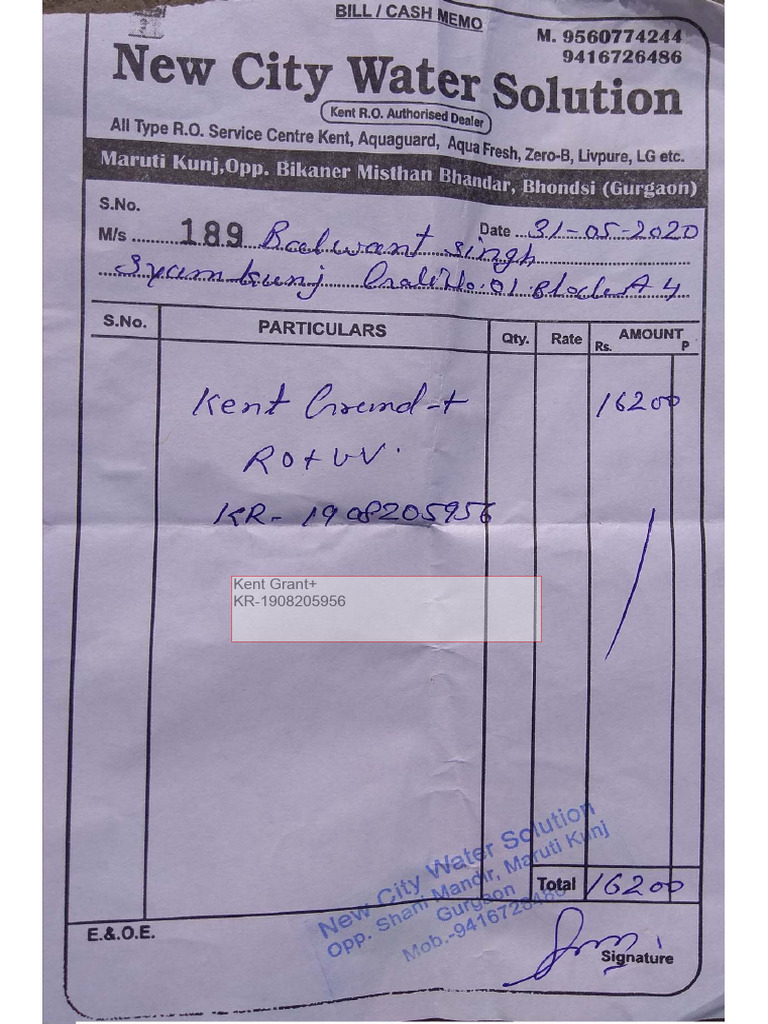 BILL / CASH MEMO
M. 9560774244
9416726486
New City Water Solution
Kent R.O. Authorised Dealer
All Type R.O. Service Centre Kent, Aquaguard, Aqua Fresh, Zero-B, Livpure, LG etc.
Maruti Kunj,Opp. Bikaner Misthan Bhandar, Bhondsi (Gurgaon)
S.No. 189 Date 31-05-2020
M/s Balwant Singh
Syam kunj No. 01 Block A 4
S.No. PARTICULARS Qty. Rate AMOUNT
Rs. P
Kent Grand + 16200
RO + UV
KR- 1908205956
Kent Grant+
KR-1908205956
New City Water Solution
Opp. Shani Mandir, Maruti Kunj
Gurgaon
Mob.-9416726486
Total 16200
E.&.O.E.
Signature